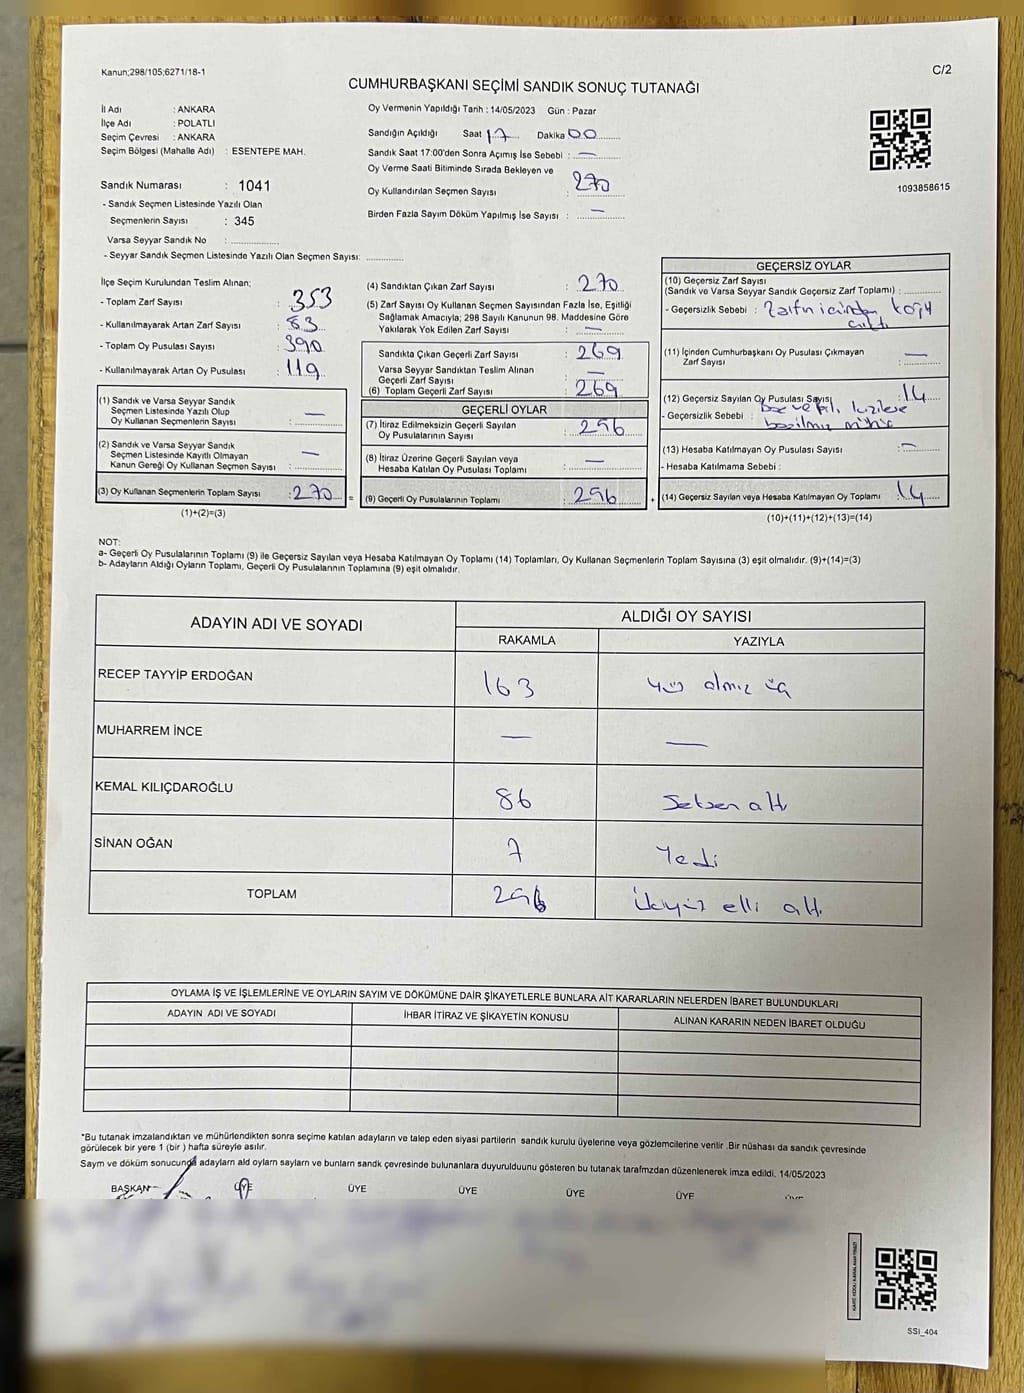 Kanun;298/105;6271/18-1
C/2
CUMHURBAŞKANI SEÇİMİ SANDIK SONUÇ TUTANAĞI
İl Adı : ANKARA
İlçe Adı : POLATLI
Seçim Çevresi : ANKARA
Seçim Bölgesi (Mahalle Adı) : ESENTEPE MAH.
Oy Vermenin Yapıldığı Tarih : 14/05/2023 Gün : Pazar
Sandığın Açıldığı Saat 17 Dakika 00
Sandık Saat 17:00'den Sonra Açımış İse Sebebi : —
Oy Verme Saati Bitiminde Sırada Bekleyen ve
Oy Kullandırılan Seçmen Sayısı : 270
Birden Fazla Sayım Döküm Yapılmış İse Sayısı : —
1093858615
Sandık Numarası : 1041
- Sandık Seçmen Listesinde Yazılı Olan
Seçmenlerin Sayısı : 345
Varsa Seyyar Sandık No :
- Seyyar Sandık Seçmen Listesinde Yazılı Olan Seçmen Sayısı:
İlçe Seçim Kurulundan Teslim Alınan;
- Toplam Zarf Sayısı : 353
- Kullanılmayarak Artan Zarf Sayısı : 83
- Toplam Oy Pusulası Sayısı : 390
- Kullanılmayarak Artan Oy Pusulası : 119
(1) Sandık ve Varsa Seyyar Sandık
Seçmen Listesinde Yazılı Olup
Oy Kullanan Seçmenlerin Sayısı : —
(2) Sandık ve Varsa Seyyar Sandık
Seçmen Listesinde Kayıtlı Olmayan
Kanun Gereği Oy Kullanan Seçmen Sayısı : —
(3) Oy Kullanan Seçmenlerin Toplam Sayısı : 270 =
(1)+(2)=(3)
(4) Sandıktan Çıkan Zarf Sayısı : 270
(5) Zarf Sayısı Oy Kullanan Seçmen Sayısından Fazla İse, Eşitliği
Sağlamak Amacıyla; 298 Sayılı Kanunun 98. Maddesine Göre
Yakılarak Yok Edilen Zarf Sayısı : —
Sandıkta Çıkan Geçerli Zarf Sayısı : 269
Varsa Seyyar Sandıktan Teslim Alınan
Geçerli Zarf Sayısı : —
(6) Toplam Geçerli Zarf Sayısı : 269
GEÇERLİ OYLAR
(7) İtiraz Edilmeksizin Geçerli Sayılan
Oy Pusulalarının Sayısı : 256
(8) İtiraz Üzerine Geçerli Sayılan veya
Hesaba Katılan Oy Pusulası Toplamı : —
(9) Geçerli Oy Pusulalarının Toplamı : 256 +
GEÇERSİZ OYLAR
(10) Geçersiz Zarf Sayısı
(Sandık ve Varsa Seyyar Sandık Geçersiz Zarf Toplamı) :
- Geçersizlik Sebebi : Zarfın içinden
çıktı
(11) İçinden Cumhurbaşkanı Oy Pusulası Çıkmayan
Zarf Sayısı : —
(12) Geçersiz Sayılan Oy Pusulası Sayısı : 14
- Geçersizlik Sebebi :
(13) Hesaba Katılmayan Oy Pusulası Sayısı : —
- Hesaba Katılmama Sebebi :
(14) Geçersiz Sayılan veya Hesaba Katılmayan Oy Toplamı : 14
(10)+(11)+(12)+(13)=(14)
NOT:
a- Geçerli Oy Pusulalarının Toplamı (9) ile Geçersiz Sayılan veya Hesaba Katılmayan Oy Toplamı (14) Toplamları, Oy Kullanan Seçmenlerin Toplam Sayısına (3) eşit olmalıdır. (9)+(14)=(3)
b- Adayların Aldığı Oyların Toplamı, Geçerli Oy Pusulalarının Toplamına (9) eşit olmalıdır.
ADAYIN ADI VE SOYADI
ALDIĞI OY SAYISI
RAKAMLA YAZIYLA
RECEP TAYYİP ERDOĞAN 163 yüz atmış üç
MUHARREM İNCE — —
KEMAL KILIÇDAROĞLU 86 Seksen altı
SİNAN OĞAN 7 Yedi
TOPLAM 256 ikiyüz elli altı
OYLAMA İŞ VE İŞLEMLERİNE VE OYLARIN SAYIM VE DÖKÜMÜNE DAİR ŞİKAYETLERLE BUNLARA AİT KARARLARIN NELERDEN İBARET BULUNDUKLARI
ADAYIN ADI VE SOYADI İHBAR İTİRAZ VE ŞİKAYETİN KONUSU ALINAN KARARIN NEDEN İBARET OLDUĞU
*Bu tutanak imzalandıktan ve mühürlendikten sonra seçime katılan adayların ve talep eden siyasi partilerin sandık kurulu üyelerine veya gözlemcilerine verilir .Bir nüshası da sandık çevresinde
görülecek bir yere 1 (bir ) hafta süreyle asılır.
Saym ve döküm sonucunda adaylarn ald oylarn saylarn ve bunlarn sandk çevresinde bulunanlara duyurulduunu gösteren bu tutanak tarafmzdan düzenlenerek imza edildi. 14/05/2023
BAŞKAN ÜYE ÜYE ÜYE ÜYE ÜYE ÜYE
SSI_404